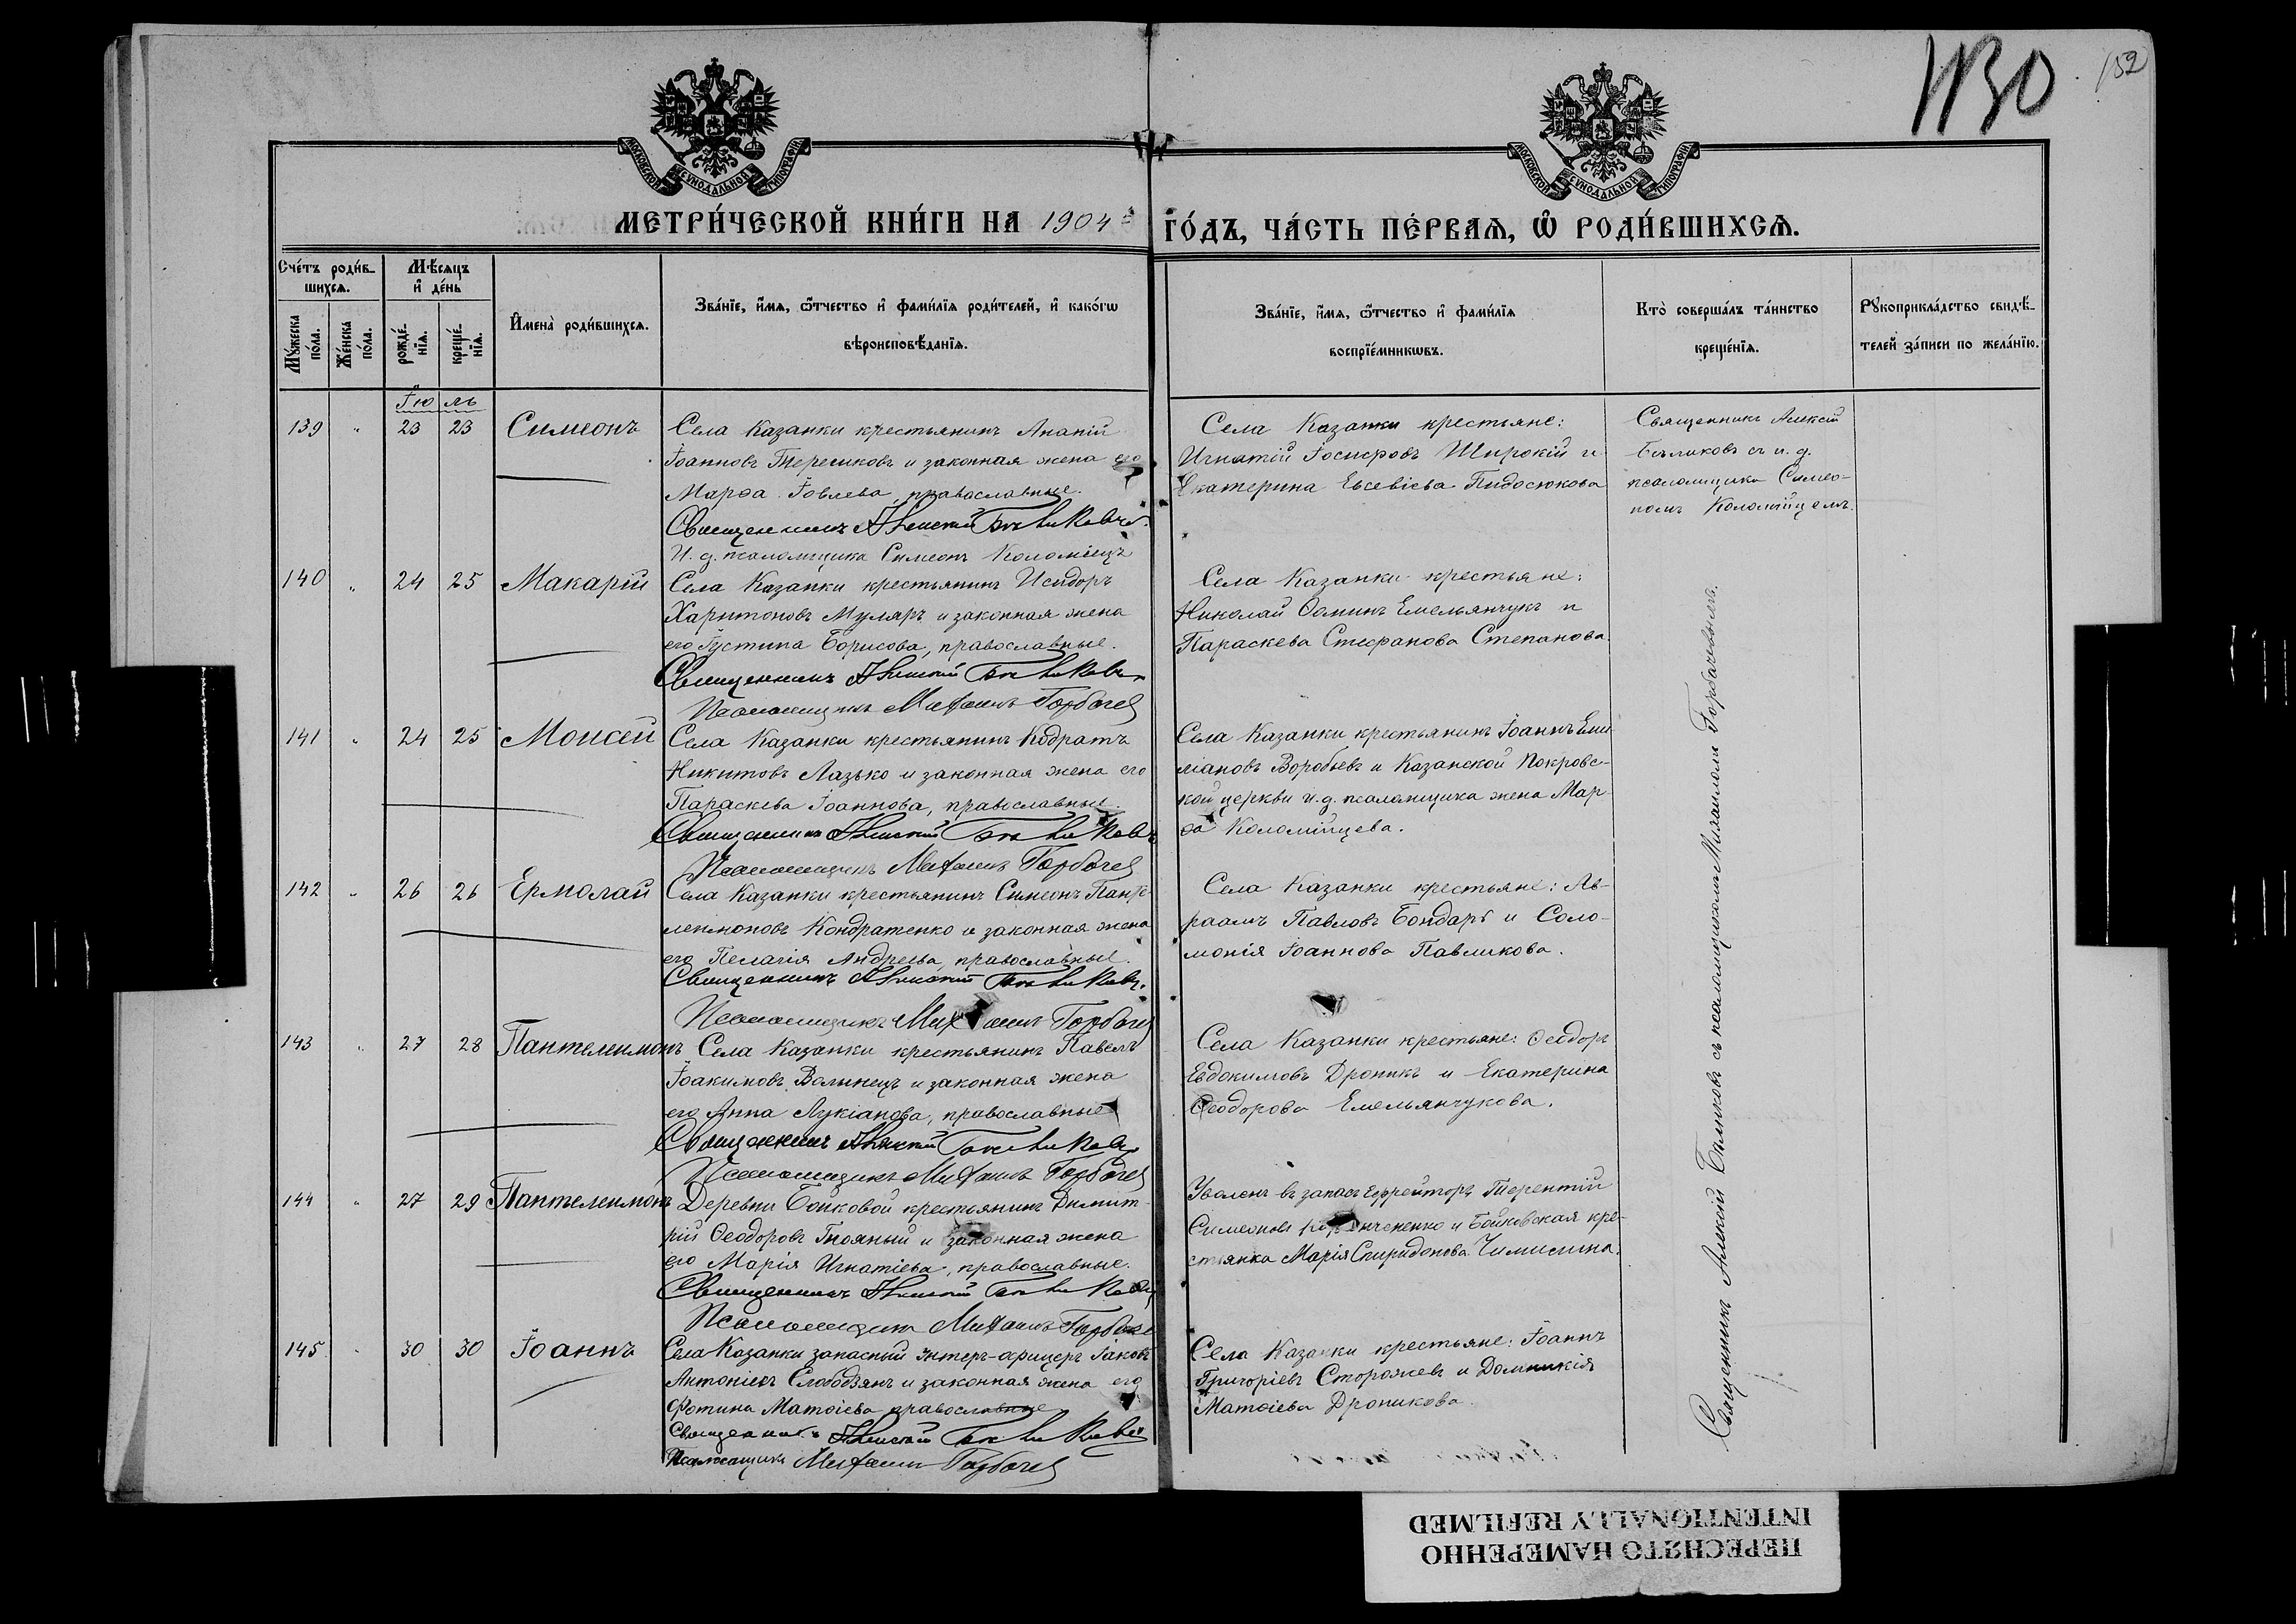 1130
152
МОСКОВСКОЙ СѴНОДАЛЬНОЙ ТИПОГРАФІИ
МОСКОВСКОЙ СѴНОДАЛЬНОЙ ТИПОГРАФІИ
МЕТРИ́ЧЕСКОЙ КНИ́ГИ НА 1904 й ГО́ДЪ, ЧА́СТЬ ПЕ́РВАѦ, Ѽ РОДИ́ВШИХСѦ.
Сче́тъ роди́в-
шихсѧ.
Мꙋ́жеска по́ла.
Же́нска по́ла.
Мѣ́сѧцъ
и҆ де́нь
рожде́-
нїѧ.
креще́-
нїѧ.
И҆мена̀ роди́вшихсѧ.
Зва́нїе, и҆́мѧ, ѻ҆́тчество и҆ фами́лїѧ роди́телей, и҆ како́гѡ
вѣроисповѣ́данїѧ.
Зва́нїе, и҆́мѧ, ѻ҆́тчество и҆ фами́лїѧ
воспрїе́мникѡвъ.
Кто̀ соверша́лъ та́инство
креще́нїѧ.
Рꙋкоприкла́дство свидѣ́-
телей за́писи по жела́нїю.
Іюль
139 " 23 23 Симеонъ
Села Казанки крестьянинъ Ананій
Іоанновъ Терешковъ и законная жена его
Марѳа Іовлева, православные.
Священникъ Алексій Бѣликовъ.
И. д. псаломщика Симеонъ Коломіецъ
Села Казанки крестьяне:
Игнатій Іосифовъ Широкій и
Екатерина Евсевіева Пидосюкова
Священникъ Алексій
Бѣликовъ съ и. д.
псаломщика Симео-
номъ Коломійцемъ.
140 " 24 25 Макарій
Села Казанки крестьянинъ Исидоръ
Харитоновъ Муляръ и законная жена
его Іустина Борисова, православные.
Священникъ Алексій Бѣликовъ
Псаломщикъ Михаилъ Горбачев
Села Казанки крестьяне:
Николай Ѳоминъ Емельянчукъ и
Параскева Стефанова Степанова.
141 " 24 25 Моисей
Села Казанки крестьянинъ Кодратъ
Никитовъ Лазько и законная жена его
Параскева Іоаннова, православные.
Священникъ Алексій Бѣликовъ
Псаломщикъ Михаилъ Горбачев
Села Казанки крестьянинъ Іоаннъ Ели
мановъ Воробьевъ и Казанской Покровс-
кой церкви и. д. псаломщика жена Мар-
ѳа Коломійцева.
142 " 26 26 Ермолай
Села Казанки крестьянинъ Симеонъ Панте-
леимоновъ Кондратенко и законная жена
его Пелагія Андреева, православные.
Священникъ Алексій Бѣликовъ.
Псаломщикъ Михаилъ Горбачев
Села Казанки крестьяне: Ав-
раамъ Павловъ Бондарь и Соло-
монія Іоаннова Павликова.
143 " 27 28 Пантелеимонъ
Села Казанки крестьянинъ Павелъ
Іоакимовъ Волынецъ и законная жена
его Анна Лукіанова, православные
Священникъ Алексій Бѣликовъ
Псаломщикъ Михаилъ Горбачев
Села Казанки крестьяне: Ѳеодоръ
Евдокимовъ Дроникъ и Екатерина
Ѳеодорова Емельянчукова.
144 " 27 29 Пантелеимонъ
Деревни Бойковой крестьянинъ Димит-
рій Ѳеодоровъ Гнояный и законная жена
его Марія Игнатіева, православные.
Священникъ Алексій Бѣликовъ
Псаломщикъ Михаилъ Горбачев
Уволенъ въ запасъ ефрейторъ Терентій
Симеоновъ и Бойковская кре-
стьянка Марія Спиридонова Чимисина.
145 " 30 30 Іоаннъ
Села Казанки запасный унтеръ-офицеръ Іаковъ
Антоніевъ Слободзянъ и законная жена его
Фотина Матѳіева православные
Священникъ Алексій Бѣликовъ
Псаломщикъ Михаилъ Горбачев
Села Казанки крестьяне: Іоаннъ
Григоріевъ Сторожевъ и Домникія
Матѳіева Дроникова.
Священникъ Алексій Бѣликовъ съ псаломщикомъ Михаиломъ Горбачевымъ.
ПЕРЕСНЯТО НАМЕРЕННО
INTENTIONALLY REFILMED